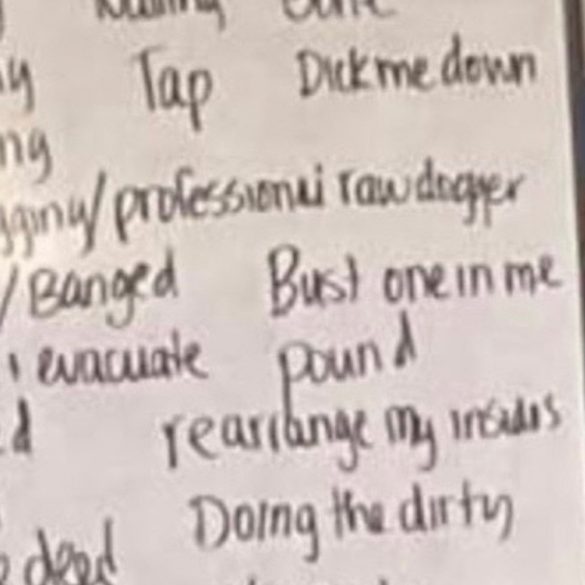 Tap Dick me down
ng
professional raw dogger
/Banged Bust one in me
evacuate pound
rearrange my insides
Doing the dirty
deed